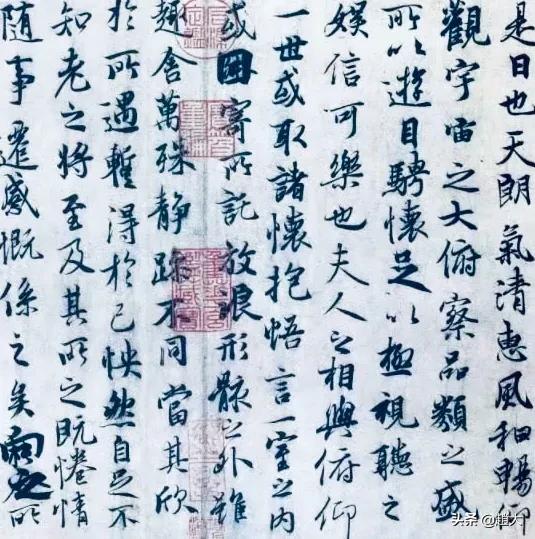 是日也天朗氣清惠風和暢仰
觀宇宙之大俯察品類之盛
所以遊目騁懷足以極視聽之
娛信可樂也夫人之相與俯仰
一世或取諸懷抱悟言一室之內
或因寄所託放浪形骸之外雖
趣舍萬殊靜躁不同當其欣
於所遇暫得於己怏然自足不
知老之將至及其所之既惓情
隨事遷感慨係之矣向之所
头条 @趙大